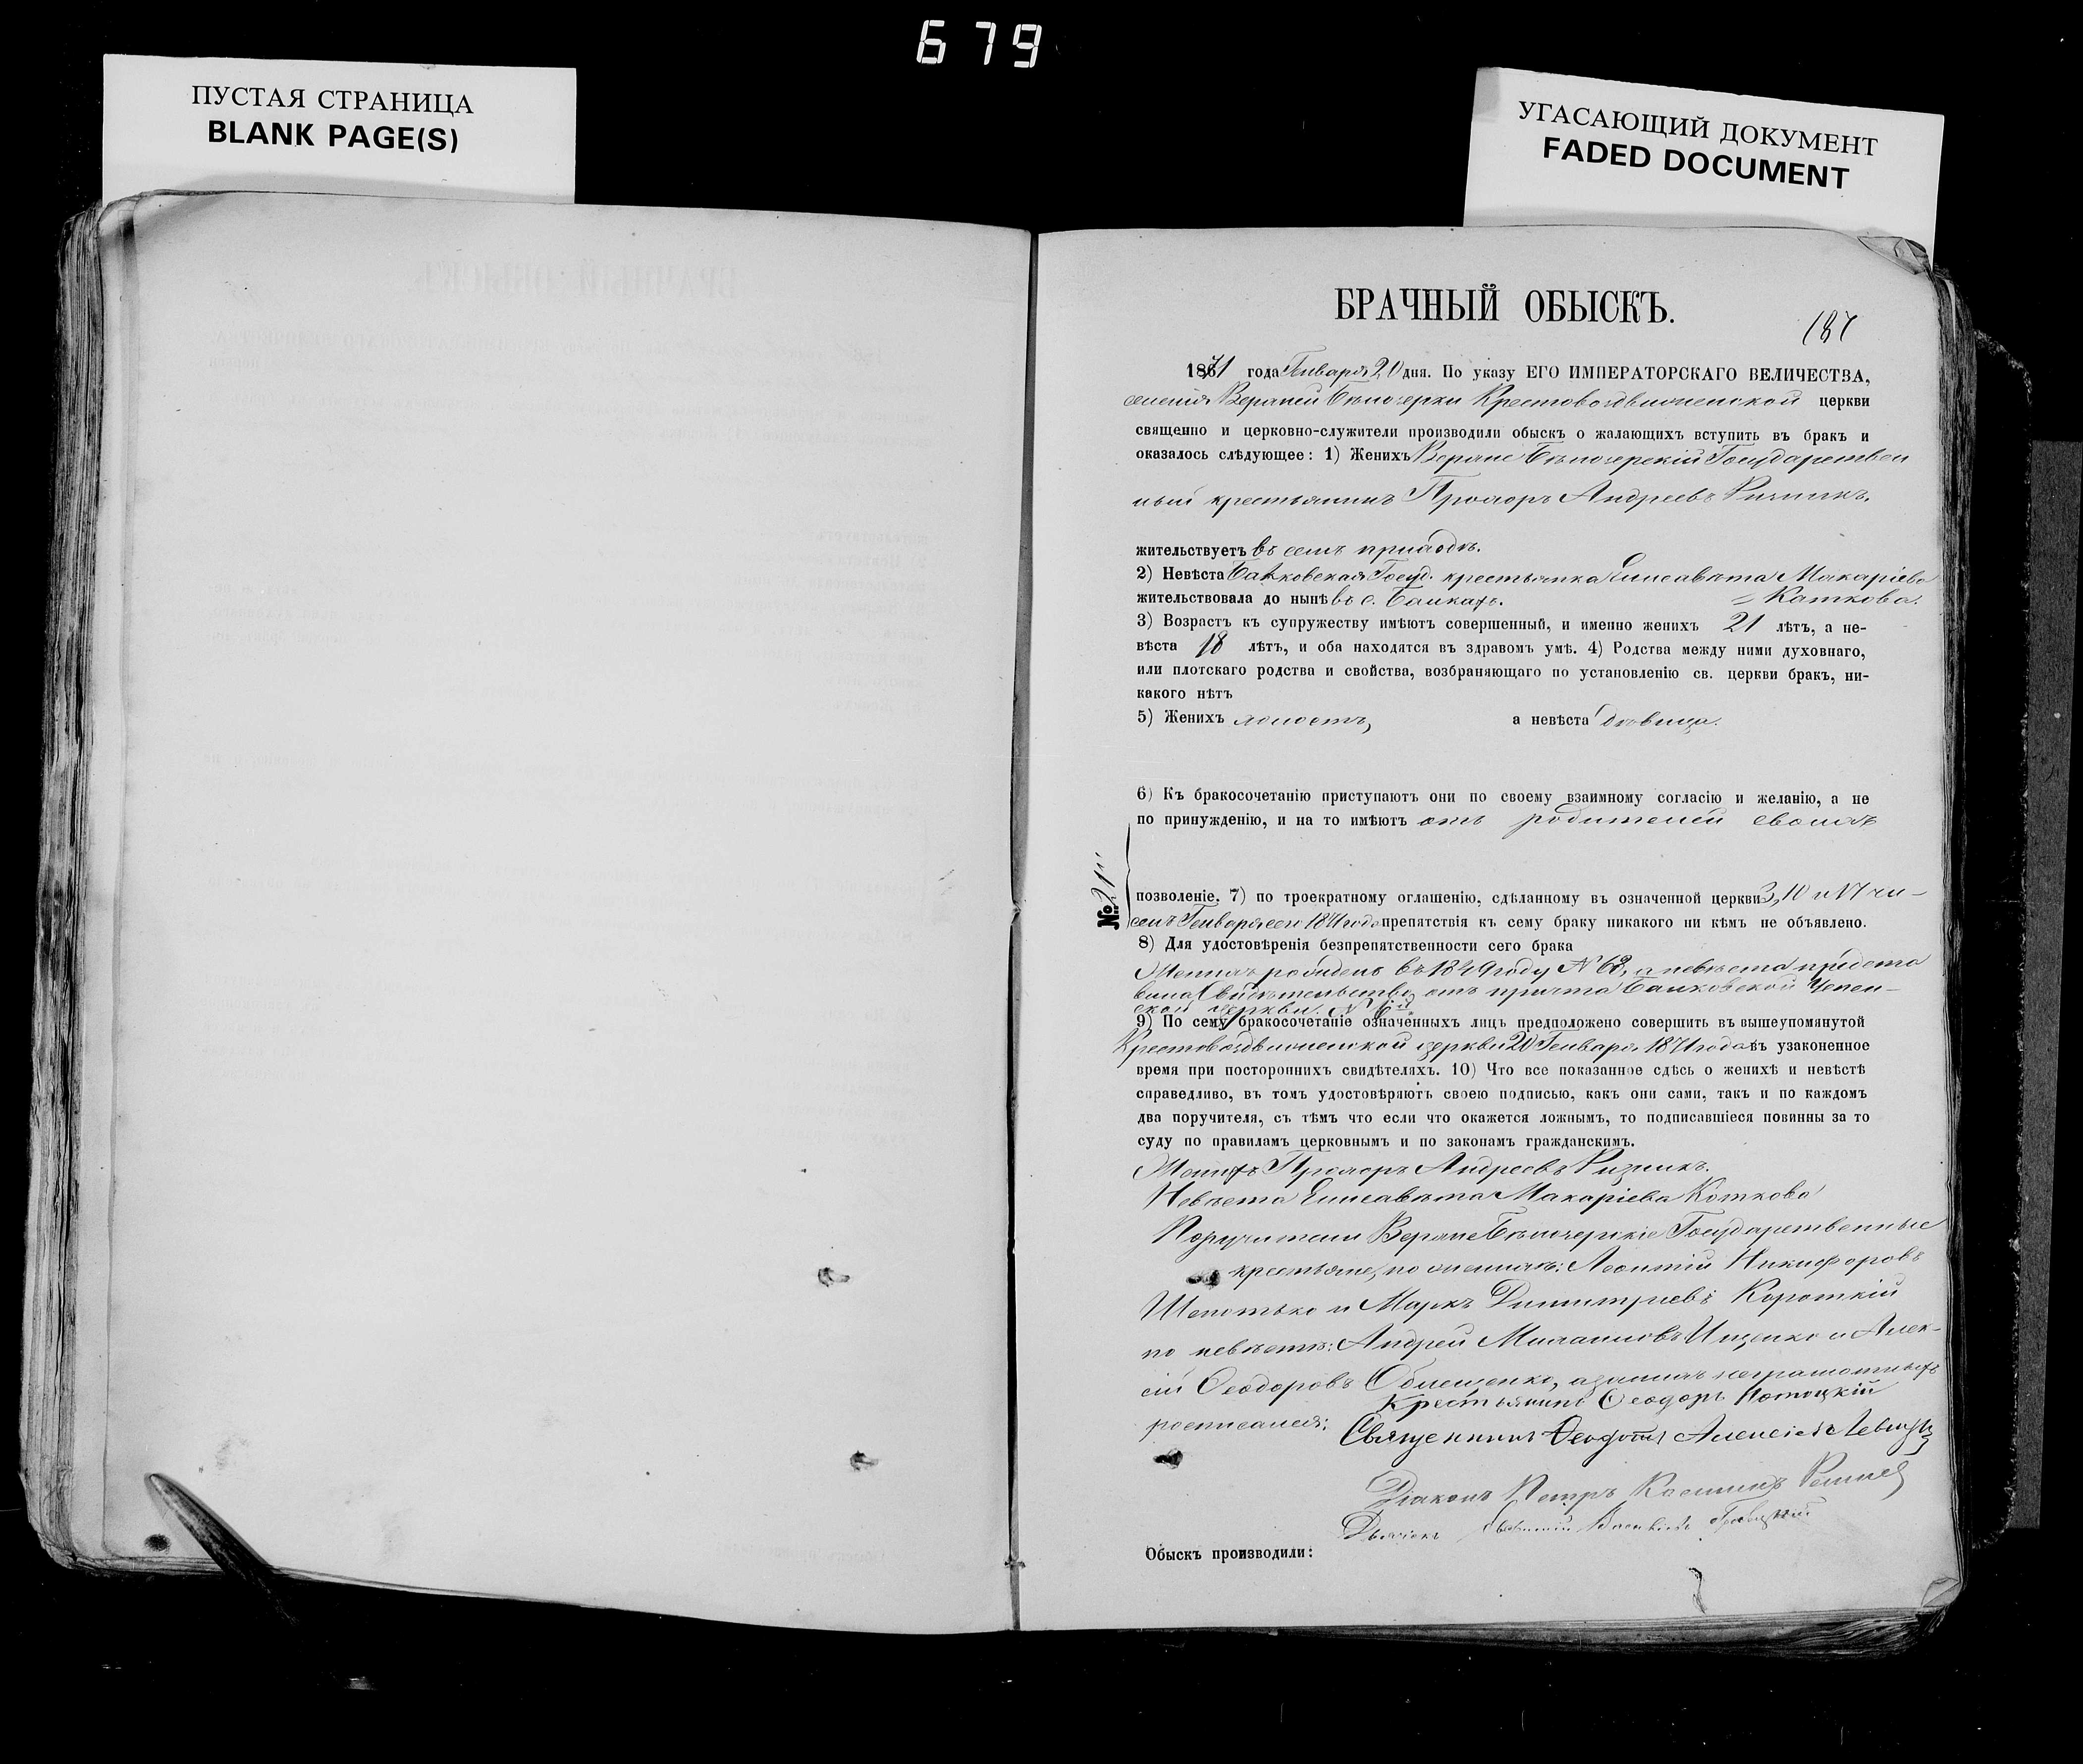 679
ПУСТАЯ СТРАНИЦА
BLANK PAGE(S)
УГАСАЮЩИЙ ДОКУМЕНТ
FADED DOCUMENT
БРАЧНЫЙ ОБЫСКЪ.
187
1871 года Генваря 20 дня. По указу ЕГО ИМПЕРАТОРСКАГО ВЕЛИЧЕСТВА,
селенія Верхней Бѣлозерки Крестовоздвиженской церкви
священно и церковно-служители производили обыскъ о жалающихъ вступить въ бракъ и
оказалось слѣдующее: 1) Женихъ Верхне Бѣлозерскій Государствен
ный крестьянинъ Прохоръ Андреевъ
жительствуетъ въ семъ приходѣ.
2) Невѣста Балковская Госуд. крестьянка Елисавѣта Макаріева
жительствовала до нынѣ въ с. Балкахъ. = Каткова.
3) Возрастъ къ супружеству имѣютъ совершенный, и именно женихъ 21 лѣтъ, а не-
вѣста 18 лѣтъ, и оба находятся въ здравомъ умѣ. 4) Родства между ними духовнаго,
или плотскаго родства и свойства, возбраняющаго по установленію св. церкви бракъ, ни-
какого нѣтъ
5) Женихъ холостъ, а невѣста дѣвица.
6) Къ бракосочетанію приступаютъ они по своему взаимному согласію и желанію, а не
по принужденію, и на то имѣютъ отъ родителей своихъ
№ 21й
позволеніе. 7) по троекратному оглашенію, сдѣланному въ означенной церкви 3, 10 и 17 чи-
селъ Генваря сего 1871 года препятствія къ сему браку никакого ни кѣмъ не объявлено.
8) Для удостовѣренія безпрепятственности сего брака
Женихъ рожденъ въ 1849 году № 63, а невѣста предста
вила Свидѣтельство отъ причта Балковской Успен-
ской церкви. №
9) По сему бракосочетаніе означенныхъ лицъ предположено совершить въ вышеупомянутой
Крестовоздвиженской церкви 20 Генваря 1871 года въ узаконенное
время при постороннихъ свидѣтеляхъ. 10) Что все показанное сдѣсь о женихѣ и невѣстѣ
справедливо, въ томъ удостовѣряютъ своею подписью, какъ они сами, такъ и по каждомъ
два поручителя, съ тѣмъ что если что окажется ложнымъ, то подписавшіеся повинны за то
суду по правиламъ церковнымъ и по законамъ гражданскимъ.
Женихъ Прохоръ Андреевъ Ризникъ.
Невѣста Елисавѣта Макаріева Каткова
Поручители Верхне Бѣлозерскіе Государственные
крестьяне, по женихѣ: Леонтій Никифоровъ
Шепотько и Маркъ Димитріевъ Короткій
по невѣстѣ: Андрей Михаиловъ Ищенко и Алек-
сій Ѳеодоровъ а за нихъ неграмотныхъ
росписался: Крестьянинъ Ѳеодоръ Потоцкій
Священникъ Алексіевъ
Діаконъ Петръ Косминъ
Дьячекъ
Обыскъ производили: